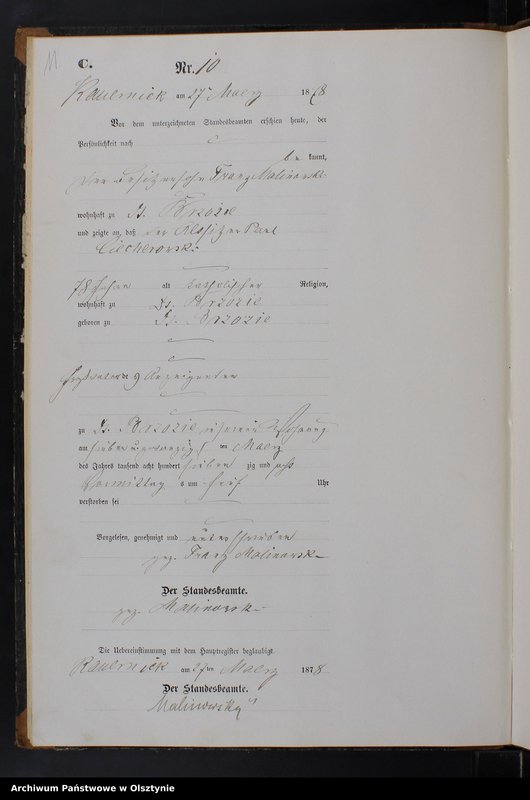 11
C.
Nr. 10
Kauernick am 27 Maerz 1878
Vor dem unterzeichneten Standesbeamten erschien heute, der
Persönlichkeit nach
be kannt,
Der Besitzersohn Franz Malinowski
wohnhaft zu Dt. Brzozie
und zeigte an, daß der Altsitzer Paul
Ciecherowski
78 Jahre alt katholischer Religion,
wohnhaft zu Dt. Brzozie
geboren zu Dt. Brzozie
Großvater des Anzeigenden
zu Dt. Brzozie in seiner Wohnung
am sieben und zwanzig ten Maerz
des Jahres tausend acht hundert sieben zig und acht
Vormittag s um fünf Uhr
verstorben sei
Vorgelesen, genehmigt und unterschrieben
gez. Franz Malinowski
Der Standesbeamte.
gez. Malinowski
Die Uebereinstimmung mit dem Hauptregister beglaubigt.
Kauernick am 27ten Maerz 1878
Der Standesbeamte.
Malinowski
Archiwum Państwowe w Olsztynie